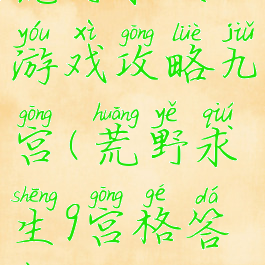 yóu xì gōng lüè jiǔ
游戏攻略九
gōng huāng yě qiú
宫(荒野求
shēng gōng gé dá
生9宫格答